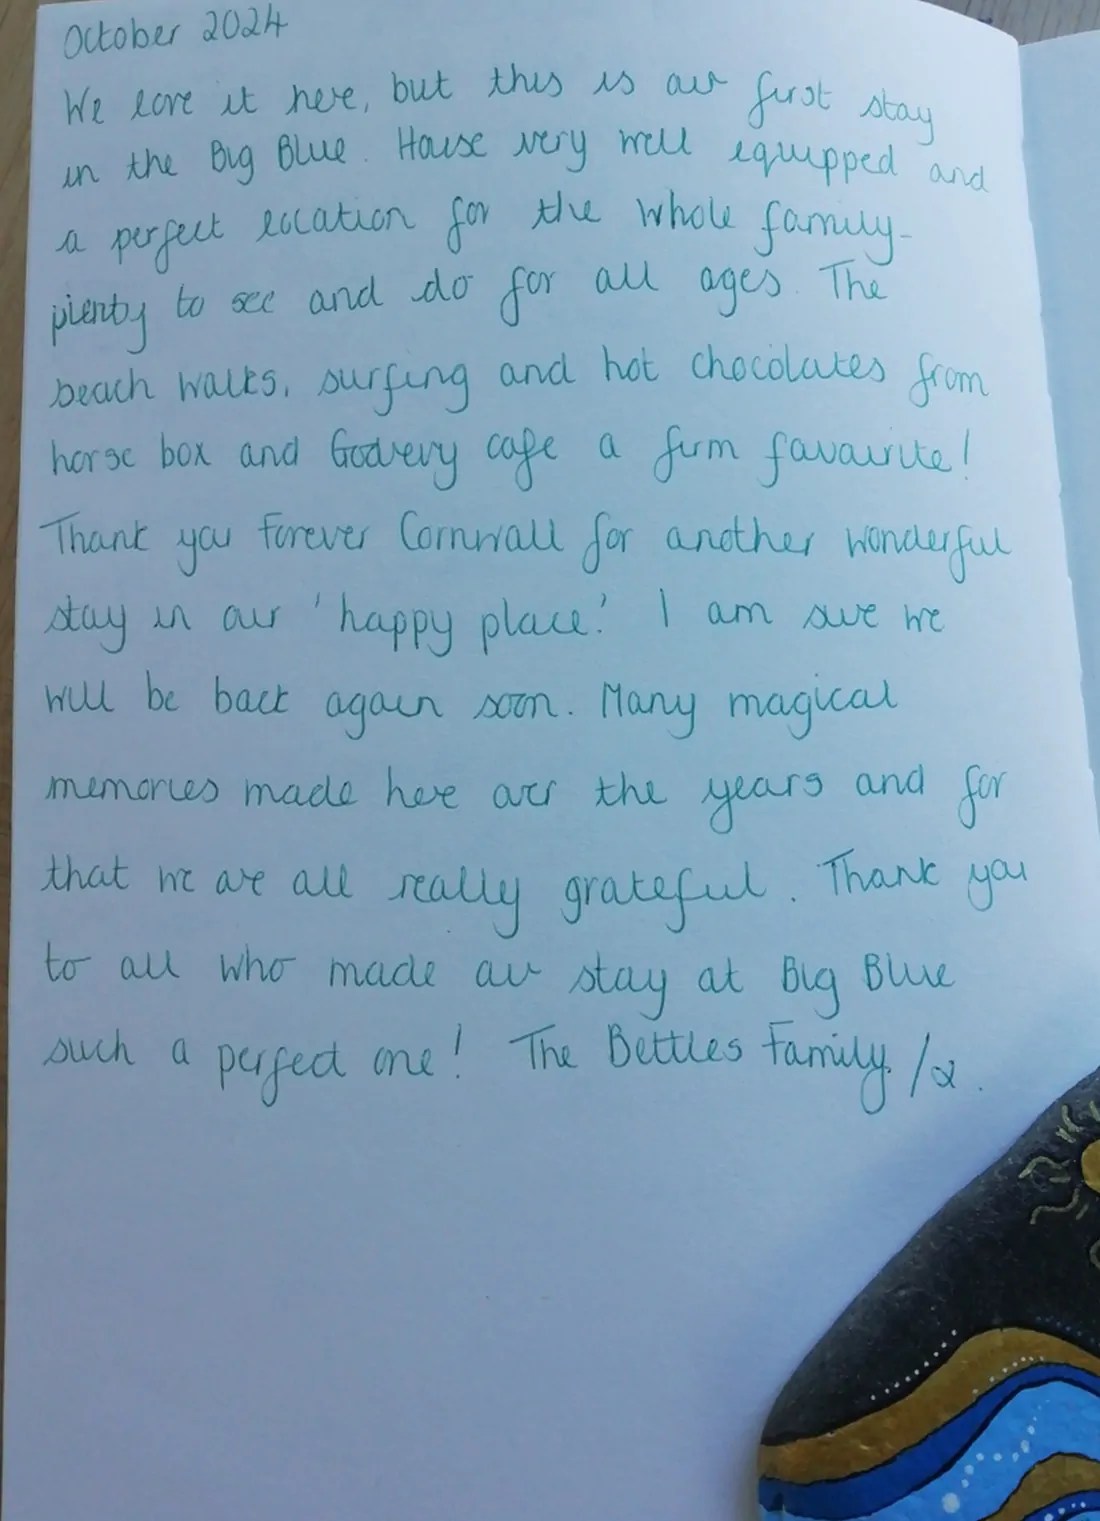 October 2024
We love it here, but this is our first stay
in the Big Blue. House very well equipped and
a perfect location for the whole family-
plenty to see and do for all ages. The
beach walks, surfing and hot chocolates from
horse box and Godrevy cafe a firm favourite!
Thank you Forever Cornwall for another wonderful
stay in our 'happy place.' I am sure we
will be back again soon. Many magical
memories made here over the years and for
that we are all really grateful. Thank you
to all who made our stay at Big Blue
such a perfect one! The Bettles Family. /x.